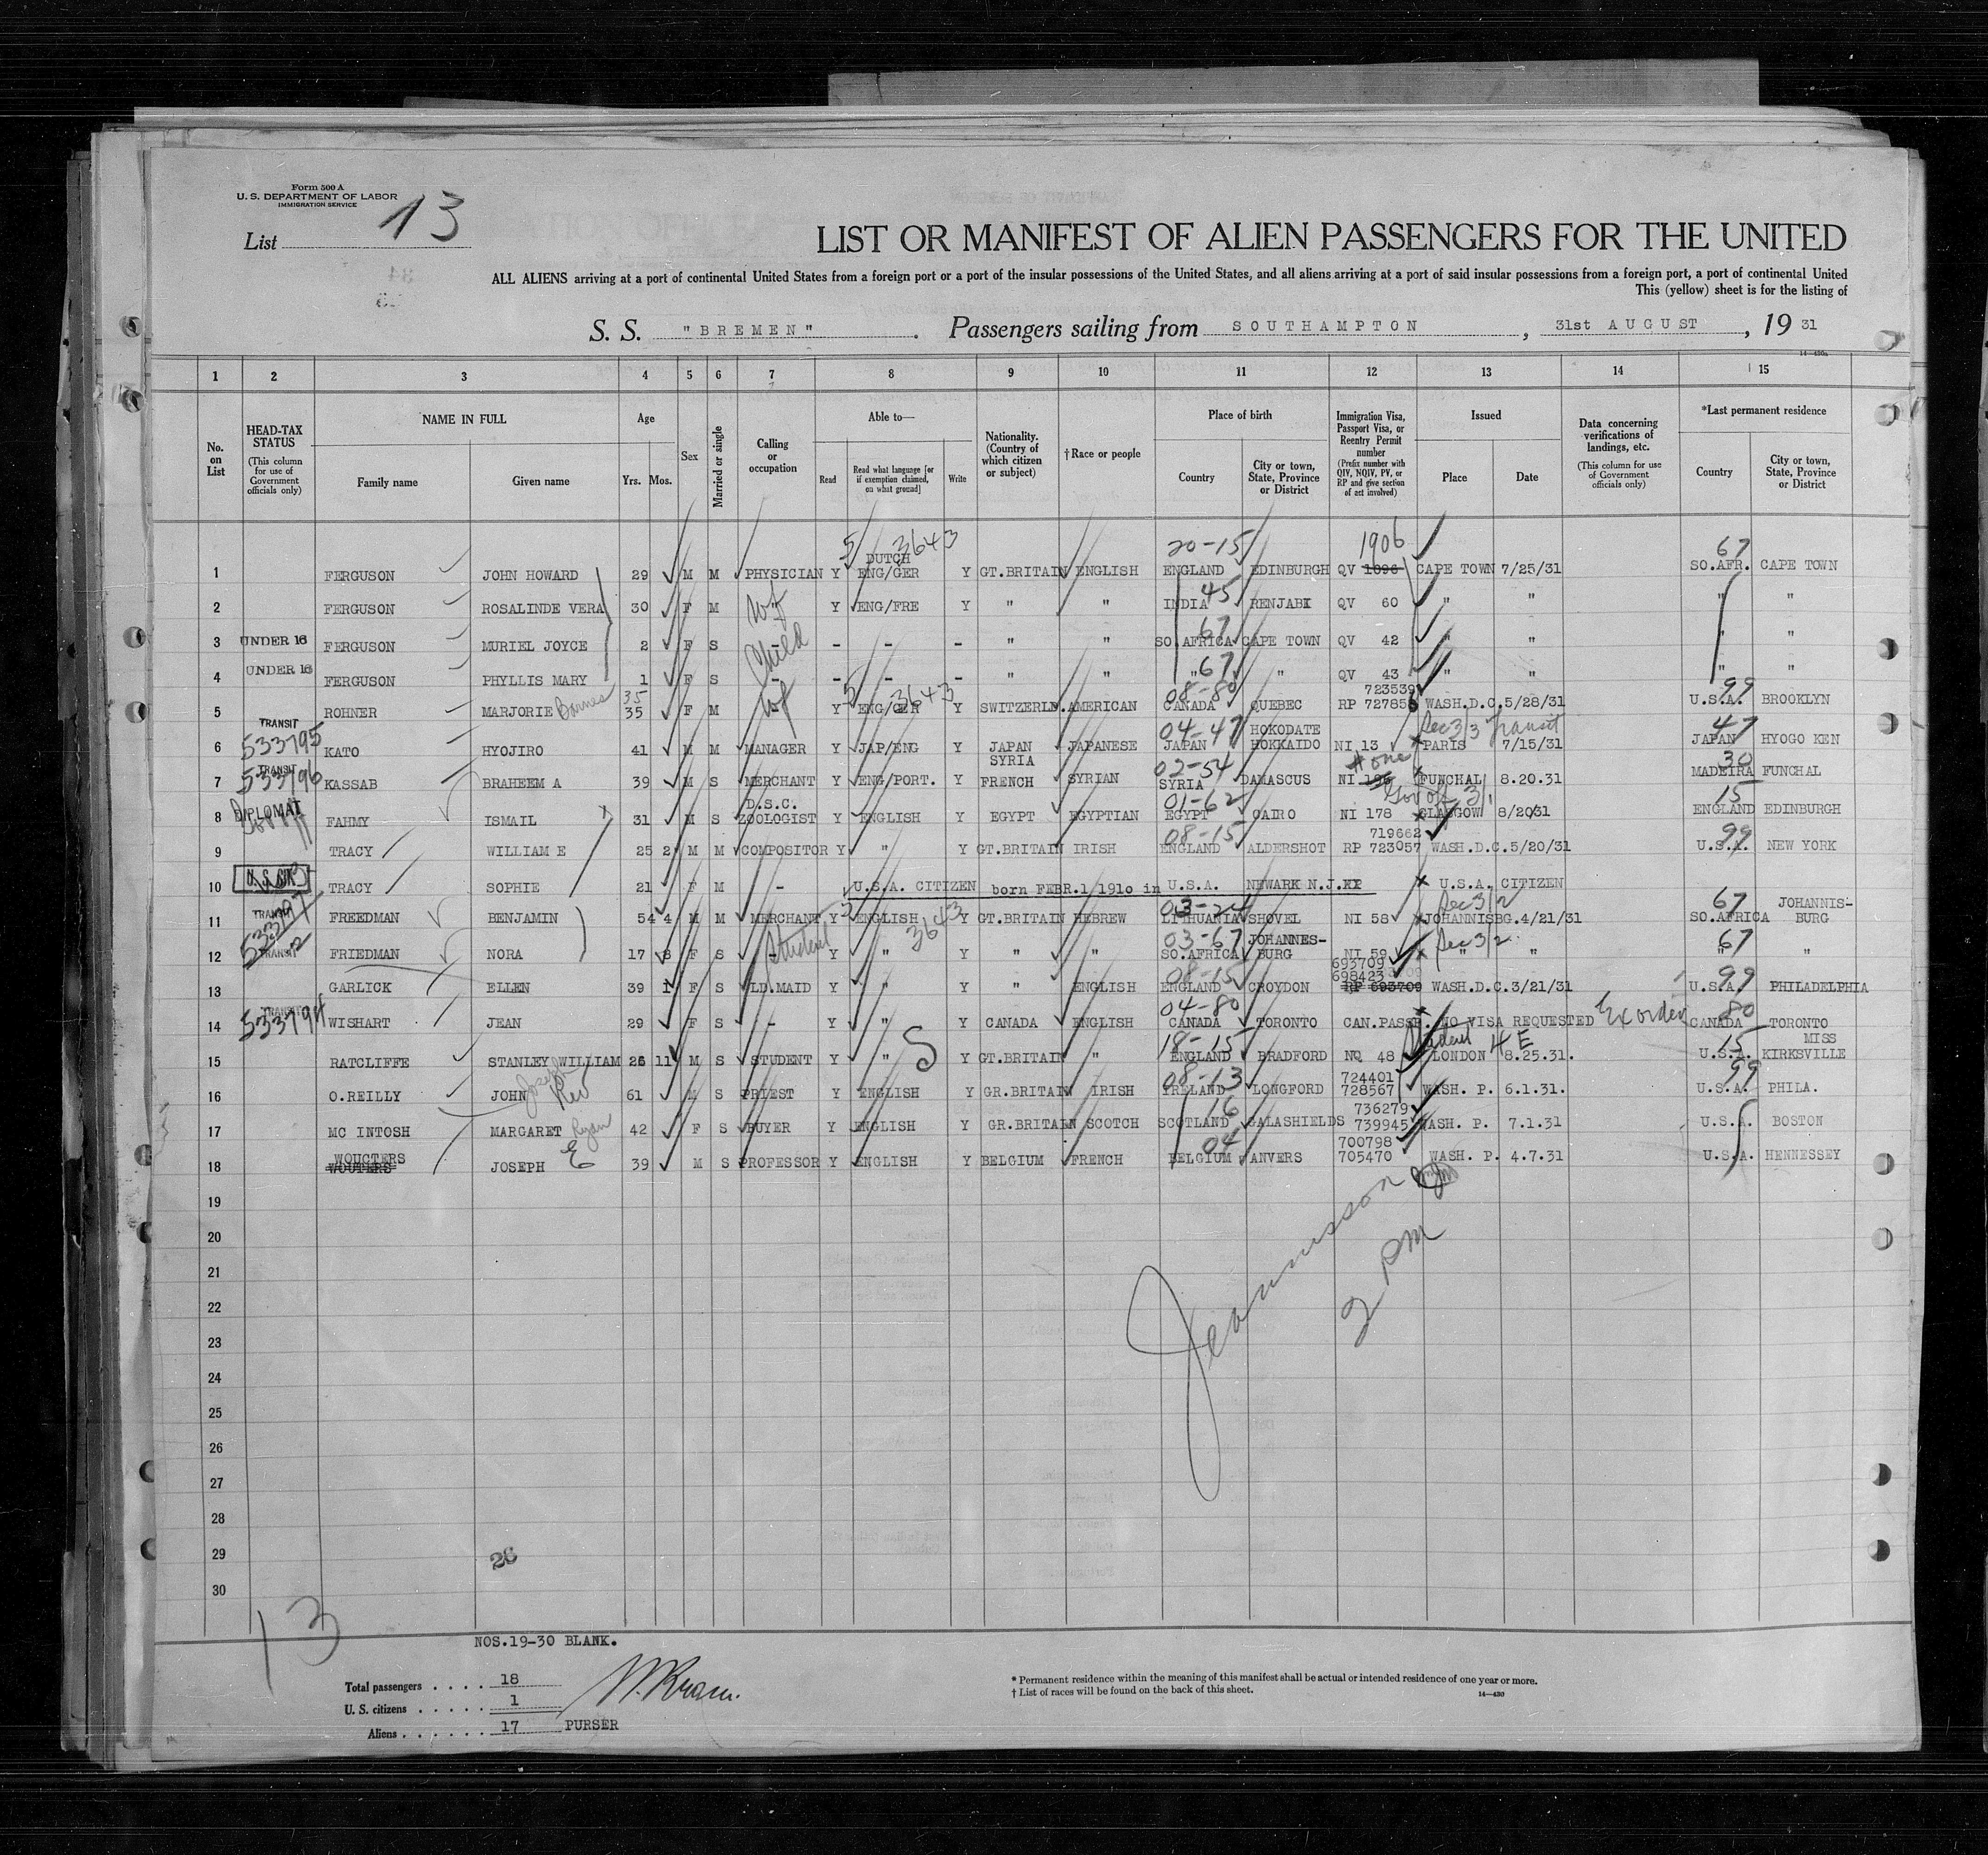 Form 500 A
U. S. DEPARTMENT OF LABOR
IMMIGRATION SERVICE
List 13
LIST OR MANIFEST OF ALIEN PASSENGERS FOR THE UNITED
ALL ALIENS arriving at a port of continental United States from a foreign port or a port of the insular possessions of the United States, and all aliens arriving at a port of said insular possessions from a foreign port, a port of continental United
This (yellow) sheet is for the listing of
S. S. "BREMEN" . Passengers sailing from SOUTHAMPTON , 31st AUGUST , 19 31
1 2 3 4 5 6 7 8 9 10 11 12 13 14 15
No. on List
HEAD-TAX STATUS (This column for use of Government officials only)
NAME IN FULL Family name Given name
Age Yrs. Mos.
Sex
Married or single
Calling or occupation
Able to— Read Read what language [or if exemption claimed, on what ground] Write
Nationality. (Country of which citizen or subject)
†Race or people
Place of birth Country City or town, State, Province or District
Immigration Visa, Passport Visa, or Reentry Permit number (Prefix number with QIV, NQIV, PV, or RP and give section of act involved)
Issued Place Date
Data concerning verifications of landings, etc. (This column for use of Government officials only)
*Last permanent residence Country City or town, State, Province or District
5 DUTCH 3643 20-15 1906 67
1 FERGUSON JOHN HOWARD 29 M M PHYSICIAN Y ENG/GER Y GT.BRITAIN ENGLISH ENGLAND EDINBURGH QV 1096 CAPE TOWN 7/25/31 SO.AFR. CAPE TOWN
2 FERGUSON ROSALINDE VERA 30 F M wf Y ENG/FRE Y " " INDIA 45 RENJABI QV 60 " " " "
3 UNDER 16 FERGUSON MURIEL JOYCE 2 F S Child - - - " " SO.AFRICA 67 CAPE TOWN QV 42 " " " "
4 UNDER 16 FERGUSON PHYLLIS MARY 1 F S - - - - " " " 67 " QV 43 " " " "
35 5 3643 08-80 723539 99
5 ROHNER MARJORIE Bonnes 35 F M wf Y ENG/GER Y SWITZERLD. AMERICAN CANADA QUEBEC RP 727858 WASH.D.C. 5/28/31 U.S.A. BROOKLYN
TRANSIT 533795 04-47 HOKODATE Sec 3/3 Transit 47
6 KATO HYOJIRO 41 M M MANAGER Y JAP/ENG Y JAPAN JAPANESE JAPAN HOKKAIDO NI 13 PARIS 7/15/31 JAPAN HYOGO KEN
TRANSIT 533796 SYRIA 02-54 # one 30
7 KASSAB BRAHEEM A 39 M S MERCHANT Y ENG/PORT. Y FRENCH SYRIAN SYRIA DAMASCUS NI 196 FUNCHAL 8.20.31 MADEIRA FUNCHAL
DIPLOMAT D.S.C. 01-62 Gov off 3/1 15
8 FAHMY ISMAIL 31 M S ZOOLOGIST Y ENGLISH Y EGYPT EGYPTIAN EGYPT CAIRO NI 178 GLASGOW 8/20/31 ENGLAND EDINBURGH
08-15 719662 99
9 TRACY WILLIAM E 25 2 M M COMPOSITOR Y " Y GT.BRITAIN IRISH ENGLAND ALDERSHOT RP 723057 WASH.D.C. 5/20/31 U.S.A. NEW YORK
10 U.S. CIT TRACY SOPHIE 21 F M - U.S.A. CITIZEN born FEBR.1 191o in U.S.A. NEWARK N.J. U.S.A. CITIZEN
TRANSIT 03-24 Sec 3/2 67 JOHANNIS-
11 FREEDMAN BENJAMIN 54 4 M M MERCHANT Y ENGLISH 3643 Y GT.BRITAIN HEBREW LITHUANIA SHOVEL NI 58 JOHANNISBG. 4/21/31 SO.AFRICA BURG
03-67 JOHANNES- Sec 3/2 67
12 TRANSIT FRIEDMAN NORA 17 8 F S Student Y " Y " " SO.AFRICA BURG NI 59 " " " "
08-15 693709 698423 99
13 GARLICK ELLEN 39 1 F S LD.MAID Y " Y " ENGLISH ENGLAND CROYDON RP 693709 WASH.D.C. 3/21/31 U.S.A. PHILADELPHIA
TRANSIT 533794 04-80 Ex order 80
14 WISHART JEAN 29 F S - Y " Y CANADA ENGLISH CANADA TORONTO CAN.PASSP. NO VISA REQUESTED CANADA TORONTO
18-15 Student 4 E 15 MISS
15 RATCLIFFE STANLEY WILLIAM 26 11 M S STUDENT Y " S Y GT.BRITAIN " ENGLAND BRADFORD NQ 48 LONDON 8.25.31. U.S.A. KIRKSVILLE
Joseph 08-13 724401 99
16 O.REILLY JOHN Rev 61 M S PRIEST Y ENGLISH Y GR.BRITAIN IRISH IRELAND LONGFORD 728567 WASH. P. 6.1.31. U.S.A. PHILA.
16 736279
17 MC INTOSH MARGARET Ryan 42 F S BUYER Y ENGLISH Y GR.BRITAIN SCOTCH SCOTLAND GALASHIELDS 739945 WASH. P. 7.1.31 U.S.A. BOSTON
WOUCTERS 04 700798
18 WOUTERS JOSEPH E 39 M S PROFESSOR Y ENGLISH Y BELGIUM FRENCH BELGIUM ANVERS 705470 WASH. P. 4.7.31 U.S.A. HENNESSEY
19
20
2 PM
21
22
23
24
25
26
27
28
29 26
30
13
NOS.19-30 BLANK.
Total passengers . . . . 18
U. S. citizens . . . . . 1
Aliens . . . . . . 17 PURSER
* Permanent residence within the meaning of this manifest shall be actual or intended residence of one year or more.
† List of races will be found on the back of this sheet.
14—430